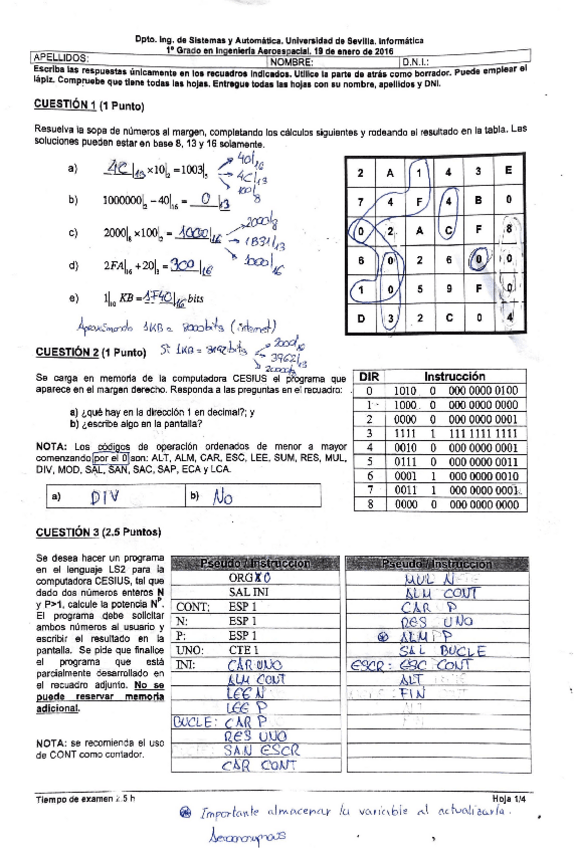 Dpto. Ing. de Sistemas y Automática. Universidad de Sevilla. Informática
1º Grado en Ingeniería Aeroespacial. 19 de enero de 2016
APELLIDOS: NOMBRE: D.N.I.:
Escriba las respuestas únicamente en los recuadros indicados. Utilice la parte de atrás como borrador. Puede emplear el
lápiz. Compruebe que tiene todas las hojas. Entregue todas las hojas con su nombre, apellidos y DNI.
CUESTIÓN 1 (1 Punto)
Resuelva la sopa de números al margen, completando los cálculos siguientes y rodeando el resultado en la tabla. Las
soluciones pueden estar en base 8, 13 y 16 solamente.
a) 4C|13 ×10|2 = 1003|5
40|16
4C|13
100|8
b) 1000000|2 − 40|16 = 0|13
c) 2000|8 ×100|2 = 1000|16
2000|8
1B31|13
1000|16
d) 2FA|16 + 20|3 = 300|16
e) 1|10 KB = 1F40|16 bits
Aproximando 1KB = 8000bits (internet)
Si 1KB = 8192bits
2000|16
3962|13
20000|8
2 A 1 4 3 E
7 4 F 4 B 0
0 2 A C F 8
6 0 2 6 0 0
1 0 5 9 F 0
D 3 2 C 0 4
CUESTIÓN 2 (1 Punto)
Se carga en memoria de la computadora CESIUS el programa que
aparece en el margen derecho. Responda a las preguntas en el recuadro:
a) ¿qué hay en la dirección 1 en decimal?; y
b) ¿escribe algo en la pantalla?
NOTA: Los códigos de operación ordenados de menor a mayor
comenzando por el 0 son: ALT, ALM, CAR, ESC, LEE, SUM, RES, MUL,
DIV, MOD, SAL, SAN, SAC, SAP, ECA y LCA.
a) DIV b) No
DIR Instrucción
0 1010 0 000 0000 0100
1 1000 0 000 0000 0000
2 0000 0 000 0000 0001
3 1111 1 111 1111 1111
4 0010 0 000 0000 0001
5 0111 0 000 0000 0011
6 0001 1 000 0000 0010
7 0011 1 000 0000 0001
8 0000 0 000 0000 0000
CUESTIÓN 3 (2.5 Puntos)
Se desea hacer un programa
en el lenguaje LS2 para la
computadora CESIUS, tal que
dado dos números enteros N
y P>1, calcule la potencia N^P.
El programa debe solicitar
ambos números al usuario y
escribir el resultado en la
pantalla. Se pide que finalice
el programa que está
parcialmente desarrollado en
el recuadro adjunto. No se
puede reservar memoria
adicional.
NOTA: se recomienda el uso
de CONT como contador.
Pseudo / Instrucción
ORG X0
SAL INI
CONT: ESP 1
N: ESP 1
P: ESP 1
UNO: CTE 1
INI: CAR UNO
ALM CONT
LEE N
LEE P
BUCLE: CAR P
RES UNO
SAN ESCR
CAR CONT
Pseudo / Instrucción
MUL N
ALM CONT
CAR P
RES UNO
ALM P
SAL BUCLE
ESCR: ESC CONT
ALT
FIN
Tiempo de examen 2.5 h Hoja 1/4
Importante almacenar la variable al actualizarla.